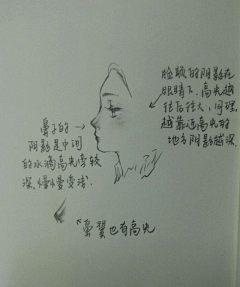 脸颊的阴影在
眼睛下，高光越
往后往大，同理
越靠近高光的
地方阴影越深
鼻子的
阴影是中间
的水滴高光旁较
深，慢慢变浅.
"鼻翼也有高光